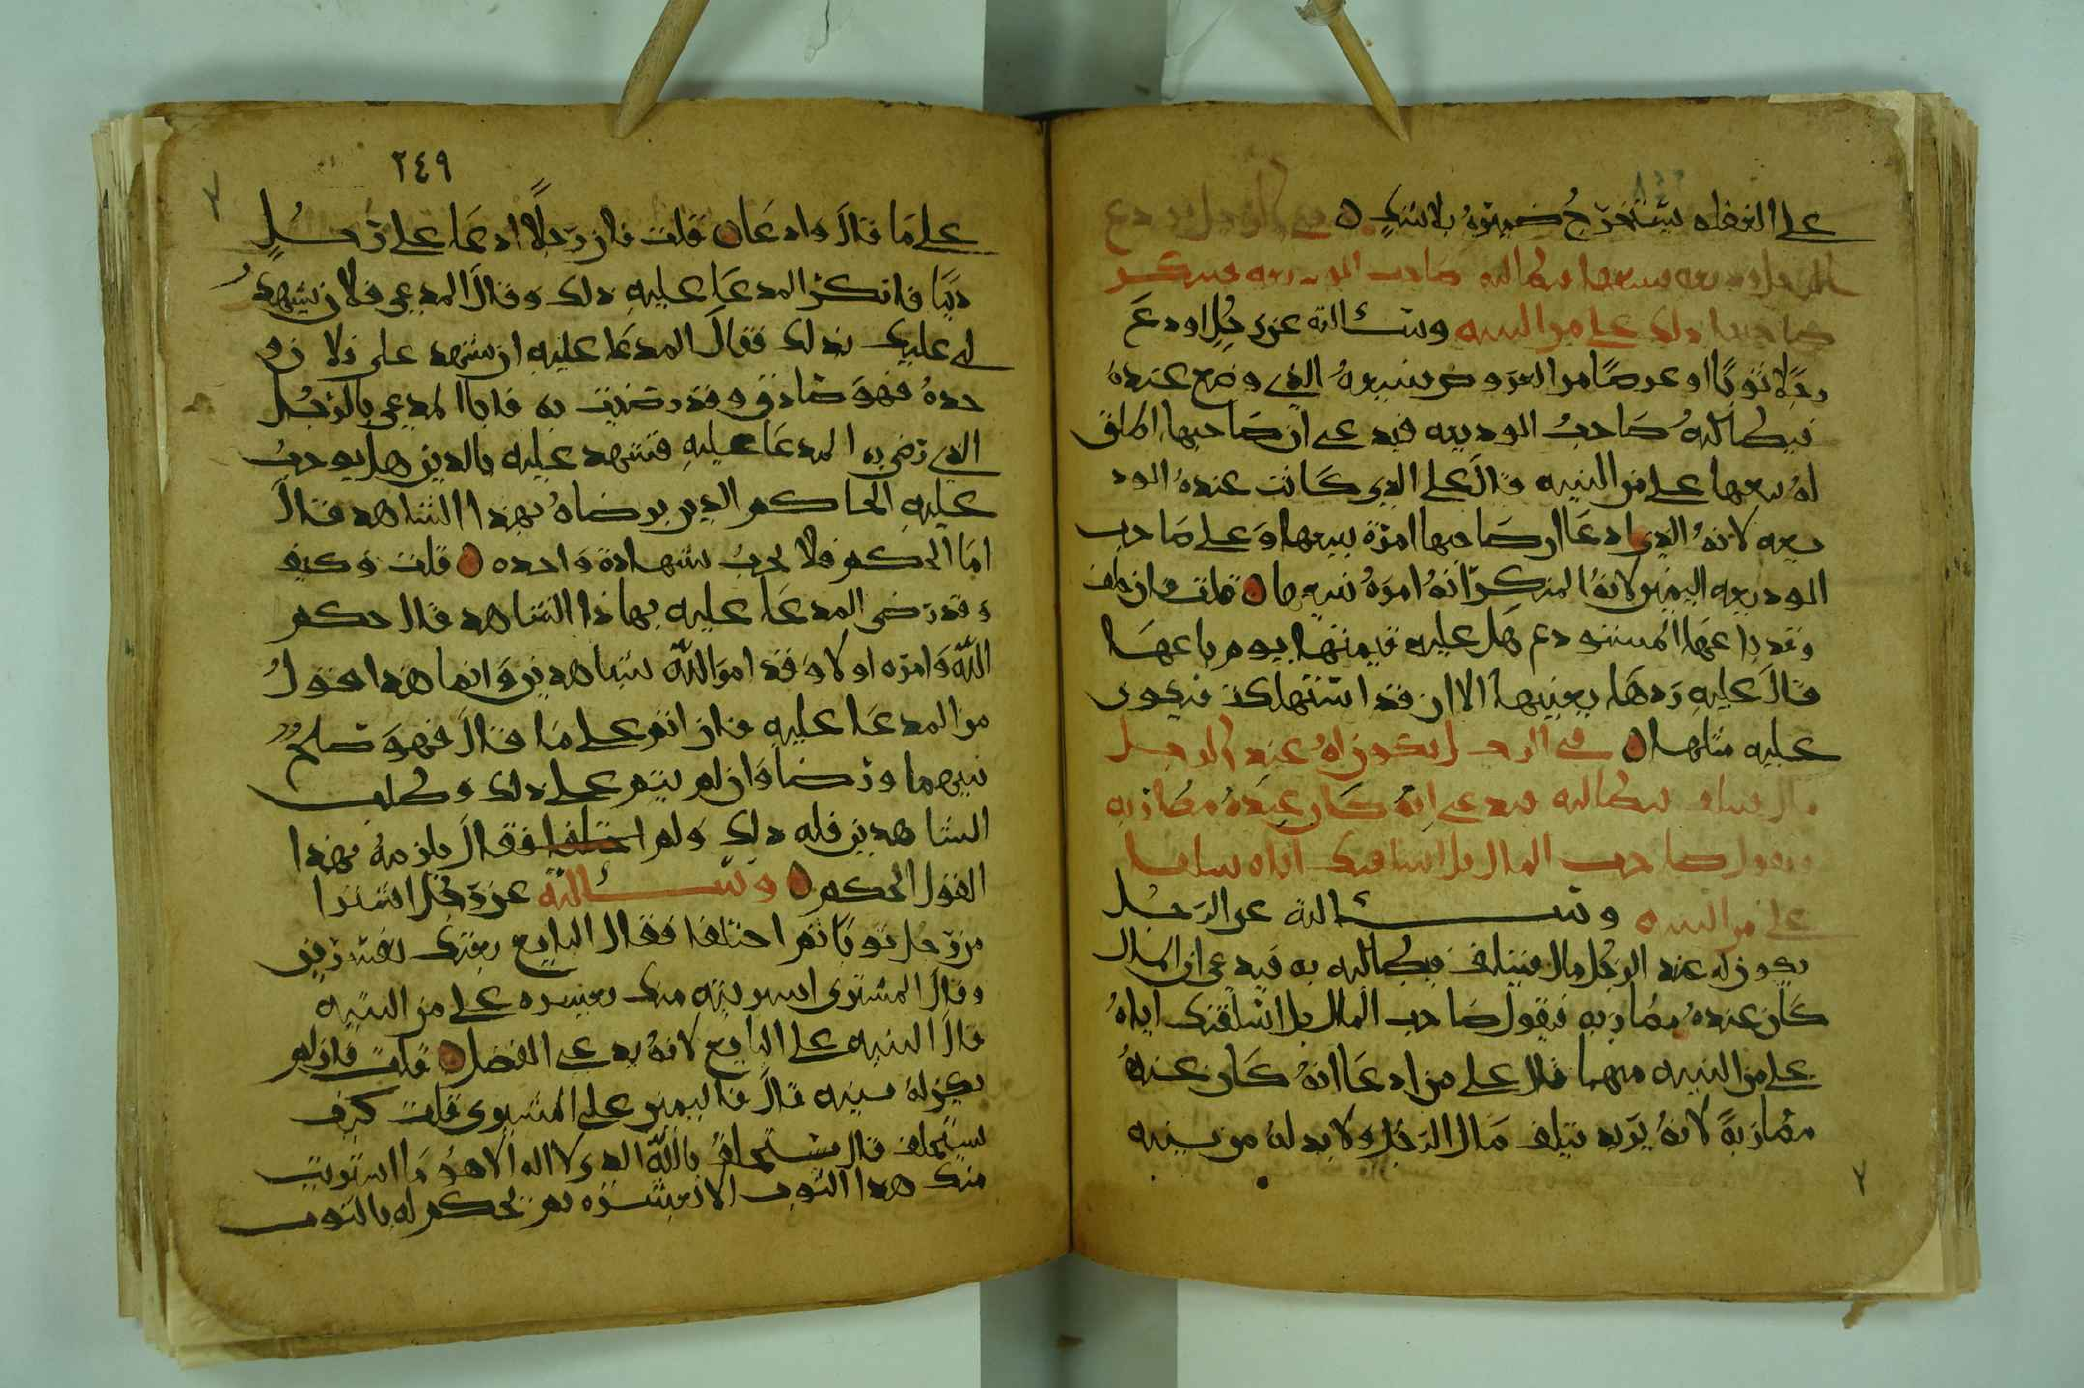 على الغفله يستخرج ضميره بلا شك في الرجل يودع
الرجل وديعه يبيعها يطالبه صاحب الوديعه فينكر
صاحبها ذلك على من البينه وسئالته عن رجل اودع
رجلا ثوبا او عرضا من العروض يبيعه الذي وضع عنده
فيطالبه صاحب الوديعه فيدعي ان صاحبها اطلق
له بيعها على من البينه قال على الذي كانت عنده الود
يعه لانه الذي ادعا ان صاحبها امره ببيعها وعلى صاحب
الوديعه اليمين لانه المنكر انه امره ببيعها قلت فان حلف
وقد باعها المستودع هل عليه قيمتها يوم باعها
قال عليه ردها بعينها الا ان قد استهلكت فيكون
عليه مثلها في الرجل يكون له عند الرجل
مال يتلف يطالبه يدعي انه كان عنده مضاربه
ويقول صاحب المال بل اسلفتك اياه سلفا
على من البينه وسئالته عن الرجل
يكون له عند الرجل مال فيتلف فيطالبه به فيدعي ان المال
كان عنده مضاربه فيقول صاحب المال بل اسلفتك اياه
على من البينه منهما قال على من ادعا انه كان عنده
مضاربة لانه يريد تلف مال الرجل ولا بد له من بينه
٢٤٩
على ما قال وادعا قلت فان رجلا ادعا على رجل
دينا فانكر المدعا عليه ذلك وقال المدعي فلان يشهد
لي عليك بذلك فقال المدعا عليه ان شهد علي فلان و
حده فهو صادق وقد رضيت به فاتا المدعي بالرجل
الذي رضي به المدعا عليه فشهد عليه بالدين هل يوجب
عليه الحاكم الدين برضاه بهذا الشاهد قال
اما الحكم فلا يجب بشهادة واحده قلت وكيف
وقد رضى المدعا عليه بهاذا الشاهد قال حكم
الله وامره اولا وقد امر الله بشاهدين وانما هذا قول
من المدعا عليه فان اتفق على ما قال فهو صلح
بينهما ورضا وان لم يتم على ذلك وطلب
الشاهدين فله ذلك ولو اختلفا فقال يلزمه بهذا
القول الحكم وسئالته عن رجل اشترا
من رجل ثوبا ثم اختلفا فقال البايع بعتك بعشرين
وقال المشتري اشتريته منك بعشره على من البينه
قال البينه على البايع لانه يدعي الفضل قلت فان لم
يكن له بينه قال فاليمين على المشتري قلت كيف
يستحلف قال يستحلف بالله الذي لا اله الا هو ما اشتريت
منك هذا الثوب الا بعشره ثم يحكم له بالثوب